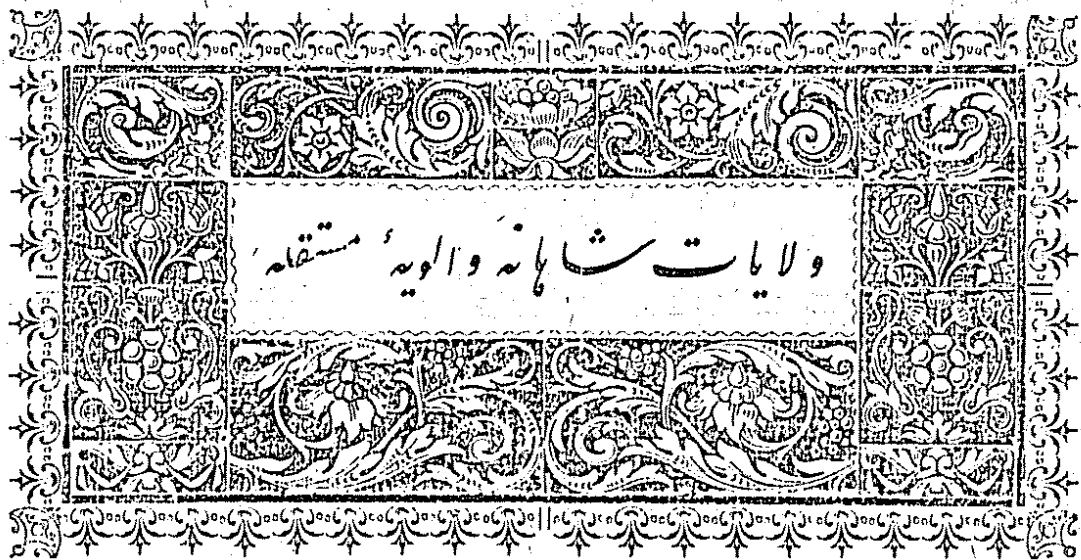 ولايات شاهانه والويۀ مستقله